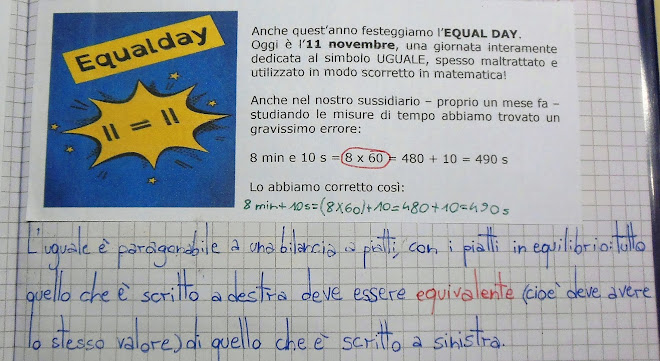 Equalday
11 = 11
Anche quest'anno festeggiamo l'EQUAL DAY.
Oggi è l'11 novembre, una giornata interamente
dedicata al simbolo UGUALE, spesso maltrattato e
utilizzato in modo scorretto in matematica!
Anche nel nostro sussidiario – proprio un mese fa –
studiando le misure di tempo abbiamo trovato un
gravissimo errore:
8 min e 10 s = 8 x 60 = 480 + 10 = 490 s
Lo abbiamo corretto così:
8 min + 10 s = (8X60)+10=480+10=490 s
L'uguale è paragonabile a una bilancia a piatti, con i piatti in equilibrio: tutto
quello che è scritto a destra deve essere equivalente (cioè deve avere
lo stesso valore) di quello che è scritto a sinistra.